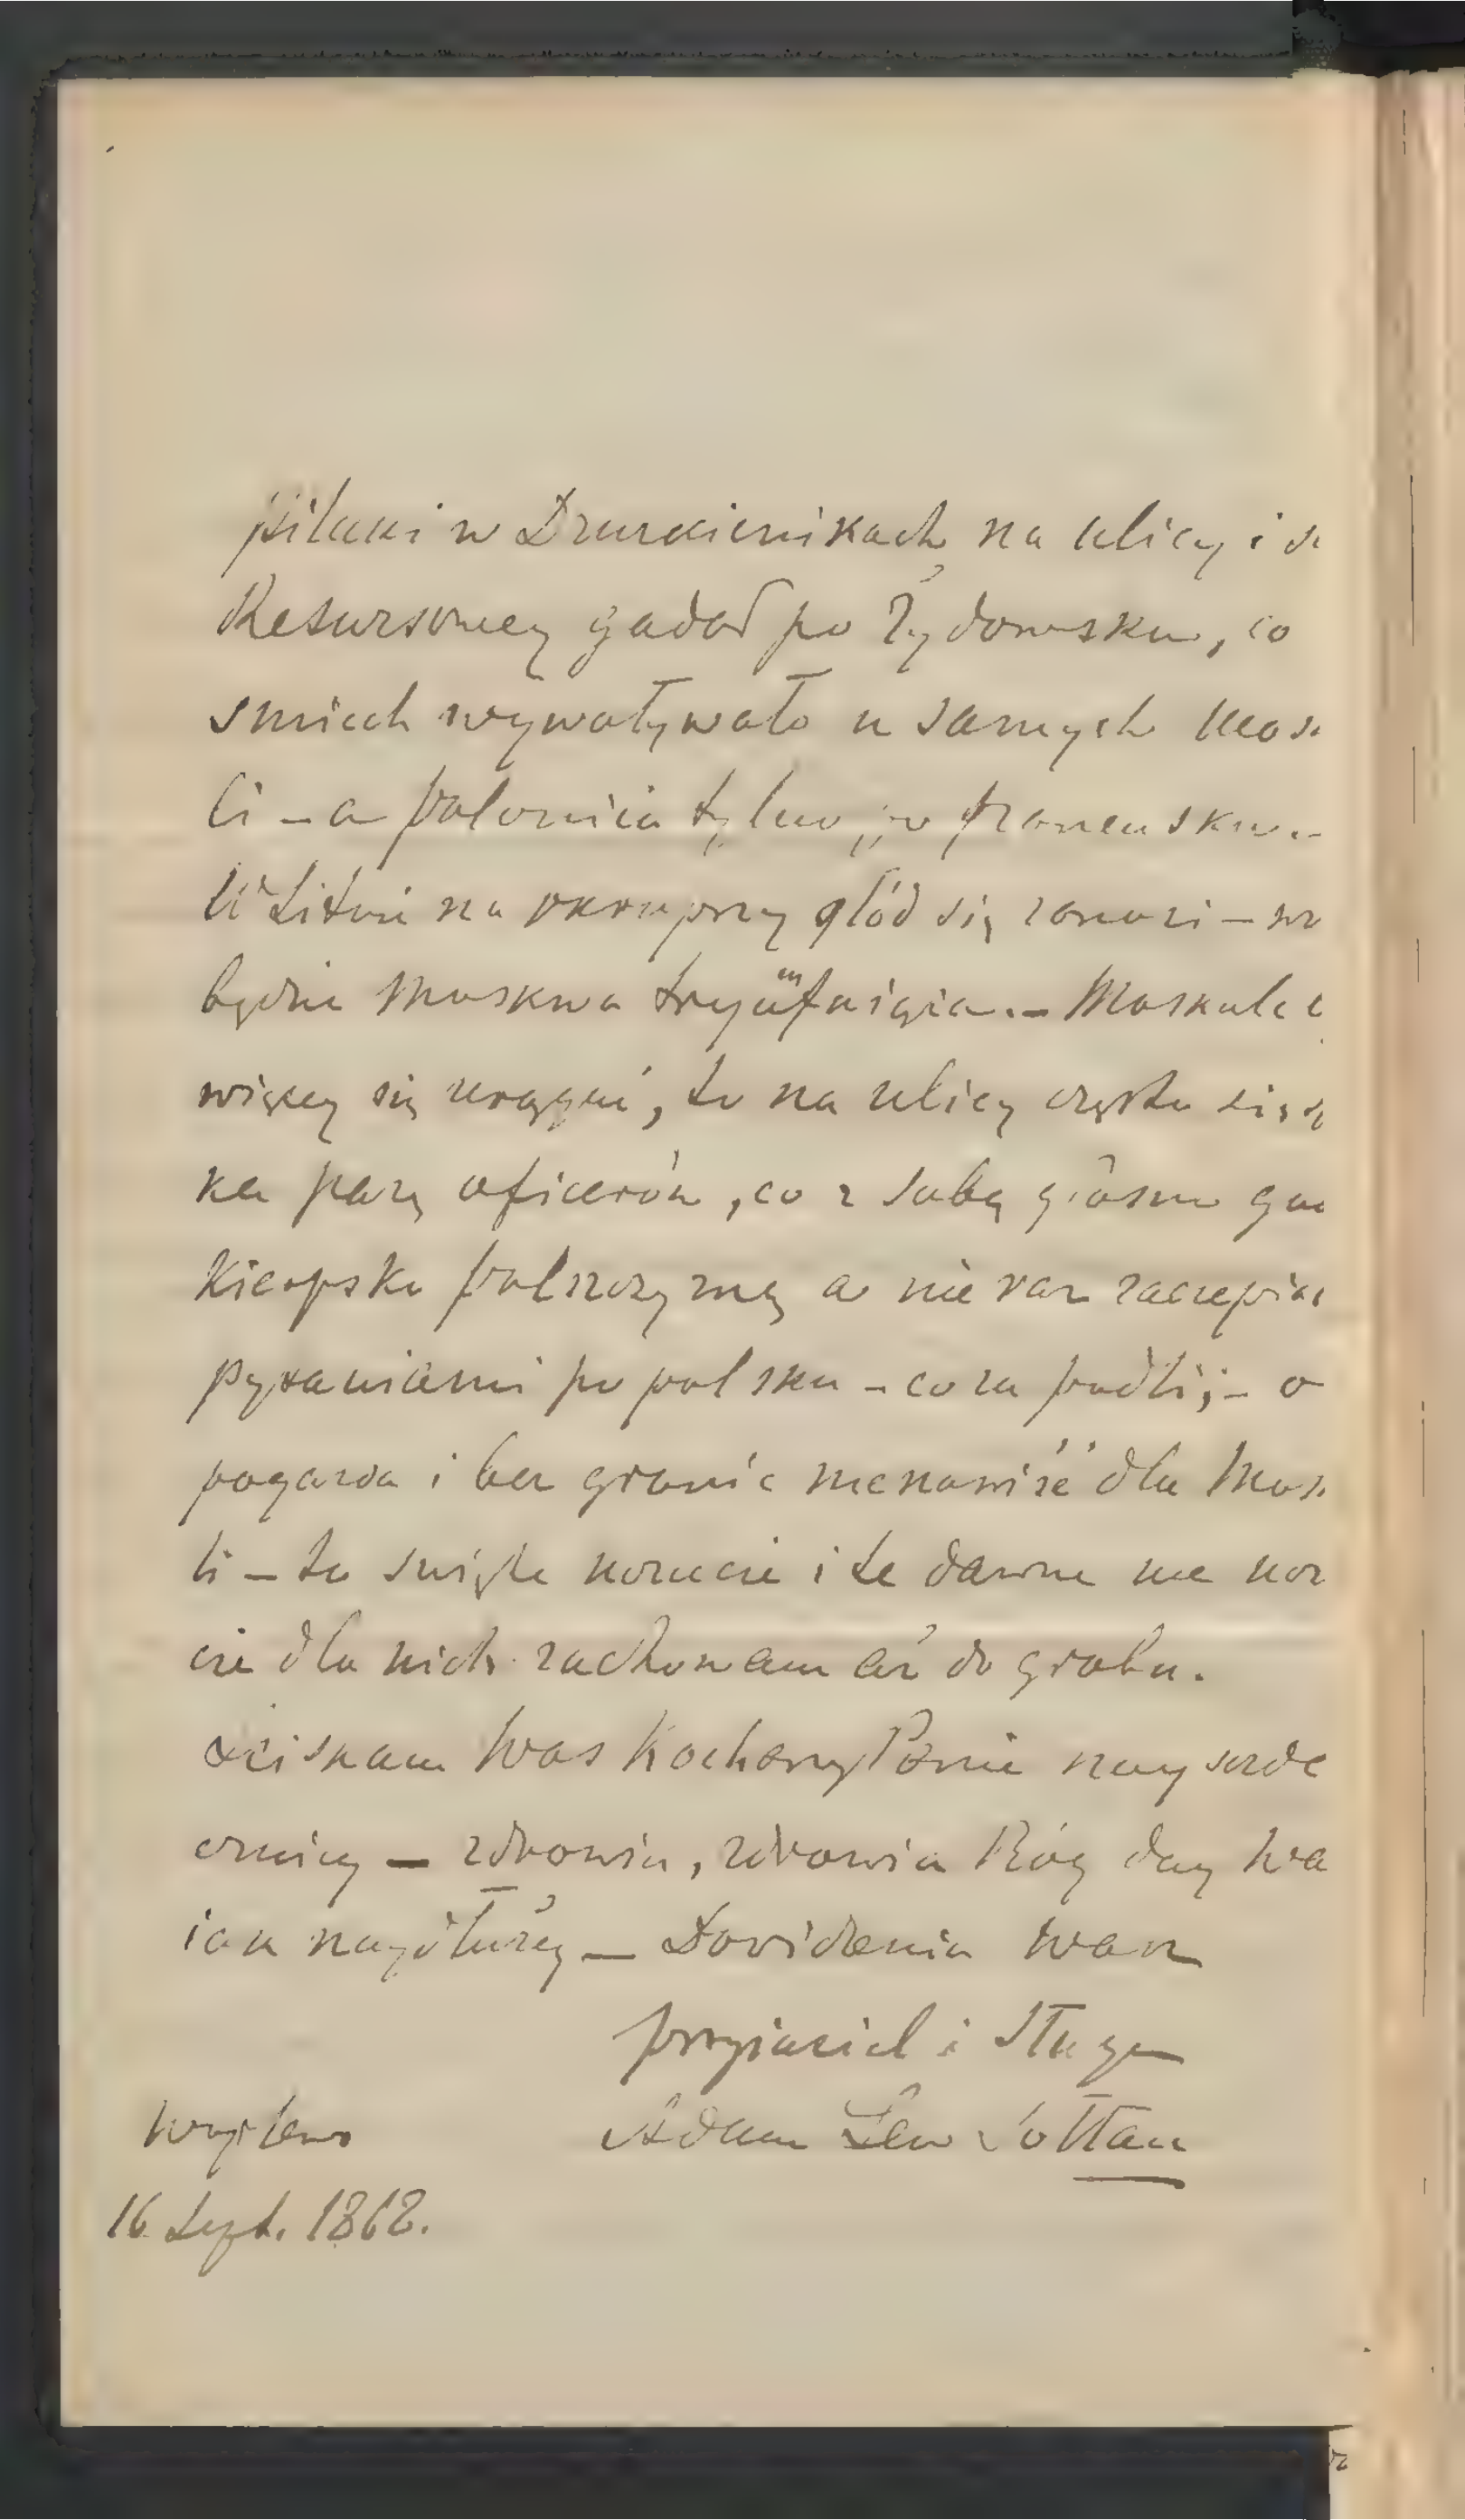 w Druskienikach na ulicy i
Resursowey gadał po Żydowsku, co
smiech wywoływało u samych Mos
li – a polonia tylko po francusku. –
W Litwie na prawdę głód się – 
będzie Moskwa tryumfuiąca. – Moskale
więcey się urągać, to na ulicy często się
ka parę oficerów, co z sobą głosno ga
Kiepską polszczyzną a nie raz zaczepia
pytaniami po polsku – co za podli; – o
pogarda i bez granic nienawiść dla Mos
li – to swięte uczucie i te dawne me ucz
cie dla nich zachowam aż do grobu.
sciskam Was Kochany Panie nayserde
czniey – zdrowia, zdrowia Bóg day Wa
iak naydłużey – Dowidzenia Wasz
przyiaciel i sługa
Adam Lew Sołtan
16 Sept. 1868.